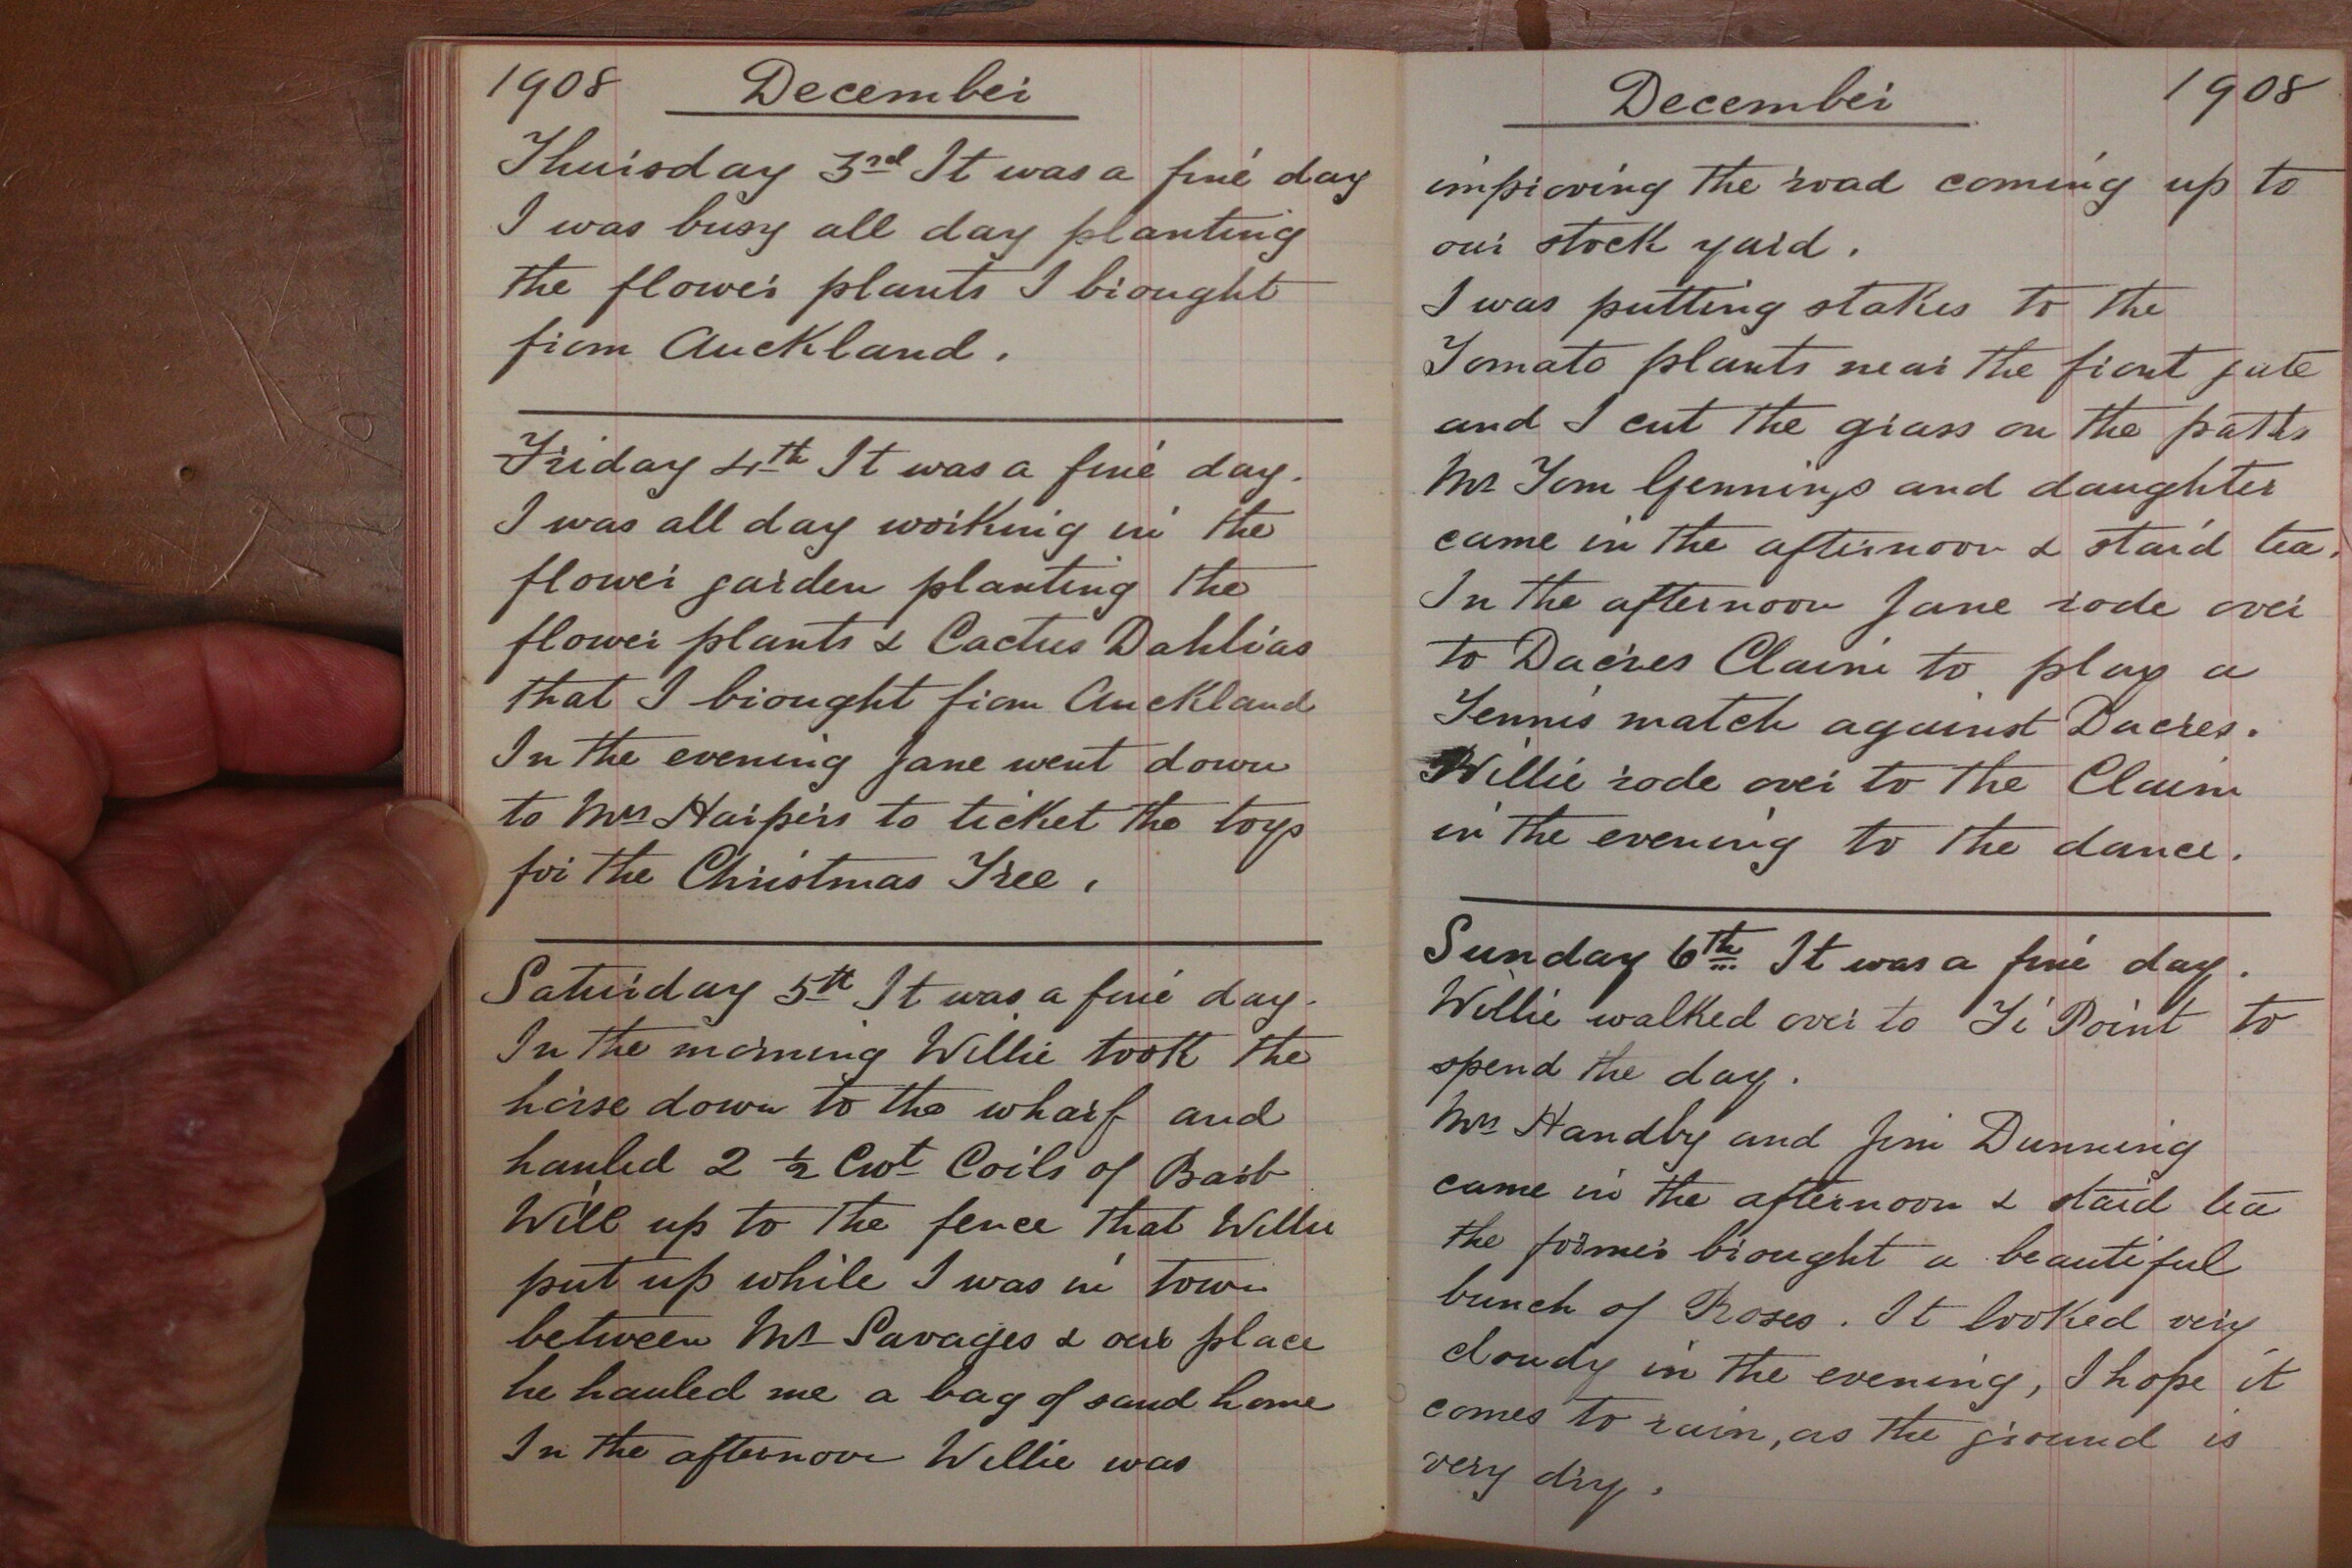 1908 December
Thursday 3rd It was a fine day
I was busy all day planting
the flower plants I brought
from Auckland.
Friday 4th It was a fine day.
I was all day working in the
flower garden planting the
flower plants & Cactus Dahlias
that I brought from Auckland
In the evening Jane went down
to Mrs Harpers to ticket the toys
for the Christmas Tree.
Saturday 5th It was a fine day.
In the morning Willie took the
horse down to the wharf and
hauled 2 ½ Cwt Coils of Barb
Will up to the fence that Willie
put up while I was in town
between Mr Savages & our place
he hauled me a bag of sand home
In the afternoon Willie was
December 1908
improving the road coming up to
our stock yard.
I was putting stakes to the
Tomato plants near the front gate
and I cut the grass on the paths
Mr Tom Gennings and daughter
came in the afternoon & staid tea.
In the afternoon Jane rode over
to Dacres Claim to play a
Tennis match against Dacres.
Willie rode over to the Claim
in the evening to the dance.
Sunday 6th It was a fine day.
Willie walked over to Ti Point to
spend the day.
Mrs Handby and Jim Dunning
came in the afternoon & staid tea
the former brought a beautiful
bunch of Roses. It looked very
cloudy in the evening, I hope it
comes to rain, as the ground is
very dry.